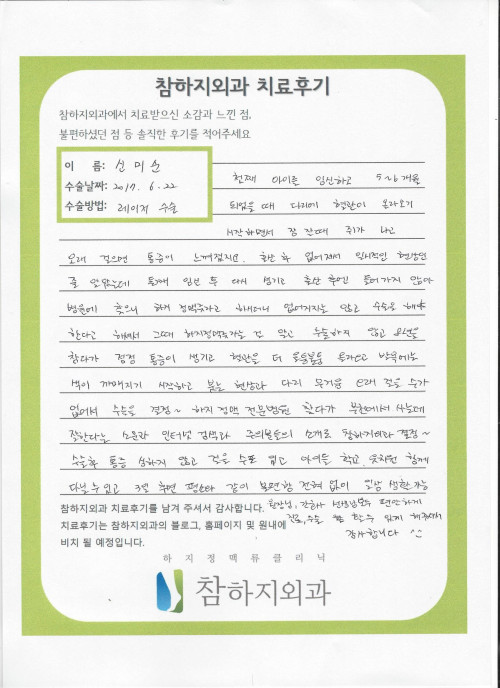 참하지외과 치료후기
참하지외과에서 치료받으신 소감과 느낀 점,
불편하셨던 점 등 솔직한 후기를 적어주세요
이 름: 신미순
수술날짜: 2017. 6. 22
수술방법: 레이저 수술
첫째 아이를 임신하고 5~6개월
되었을때 다리에 혈관이 올라오기
시작하면서 잠 잘때 쥐가 나고
오래 걸으면 통증이 느껴졌지요. 출산 후 없어져서 일시적인 현상인
줄 알았는데 둘째 임신 후 다시 생기고 출산 후엔 들어가지 않아
병원에 갔으니 하지 정맥류라고 하네더니 없어지지는 않고 수술을 해야
한다고 해서 그때 하지정맥류라는 걸 알고 수술하지 않고 오년을
참다가 점점 통증이 생기고 혈관은 더 울퉁불퉁 튀어나오고 발목에는
색이 까매지기 시작하고 붓는 현상과 다리 무거운 오래 걸을 수가
없어서 수술을 결정~ 하지정맥 전문병원 찾다가 부천에서 사는데
잘한다는 소문과 인터넷 검색과 주의분들의 소개로 참하지외과 결정~
수술후 통증 심하지 않고 걸을 수도 있고 아이들 학교 유치원 함께
다닐 수 있고 3일 후면 평소와 같이 불편함 전혀 없이 일상 생활 가능
참하지외과 치료후기를 남겨 주셔서 감사합니다. 원장님, 간호사 선생님모두 편안하게
치료후기는 참하지외과의 블로그, 홈페이지 및 원내에 진료, 수술 할 수 있게 해주셔서
비치 될 예정입니다. 감사합니다 ^^
하지정맥류클리닉
참하지외과